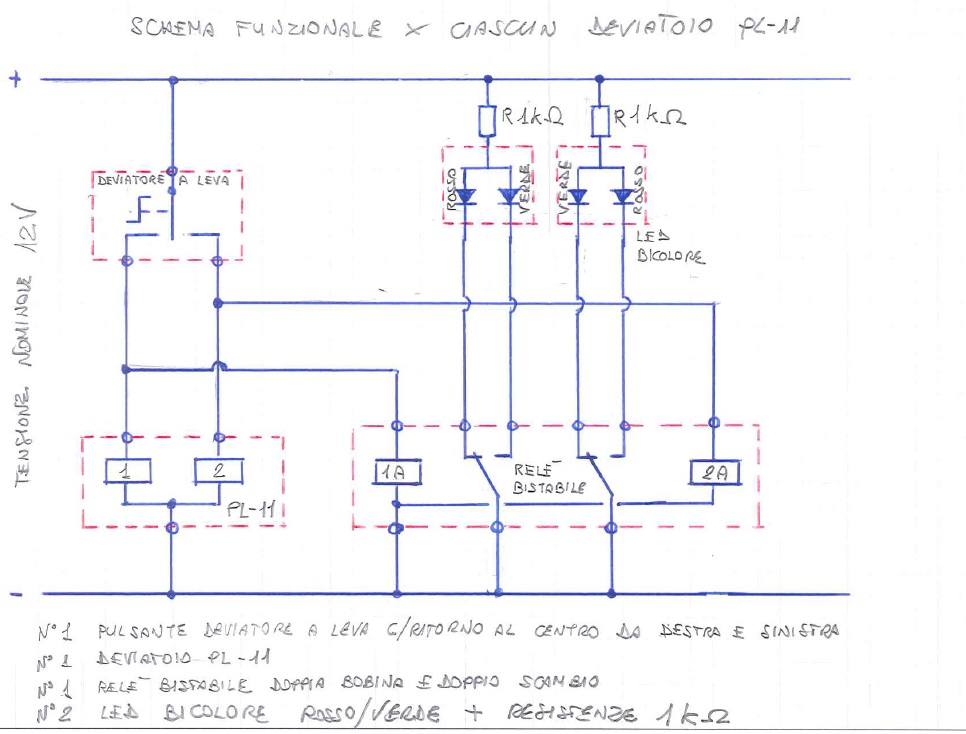 SCHEMA FUNZIONALE X CIASCUN DEVIATOIO PL-11
+
R1kΩ
R1kΩ
DEVIATORE A LEVA
ROSSO
VERDE
VERDE
ROSSO
LED
BICOLORE
TENSIONE NOMINALE 12V
1
2
PL-11
1A
RELÈ
BISTABILE
2A
-
N°1 PULSANTE DEVIATORE A LEVA C/RITORNO AL CENTRO DA DESTRA E SINISTRA
N°1 DEVIATOIO PL-11
N°1 RELÈ BISTABILE DOPPIA BOBINA E DOPPIO SCAMBIO
N°2 LED BICOLORE ROSSO/VERDE + RESISTENZE 1kΩ